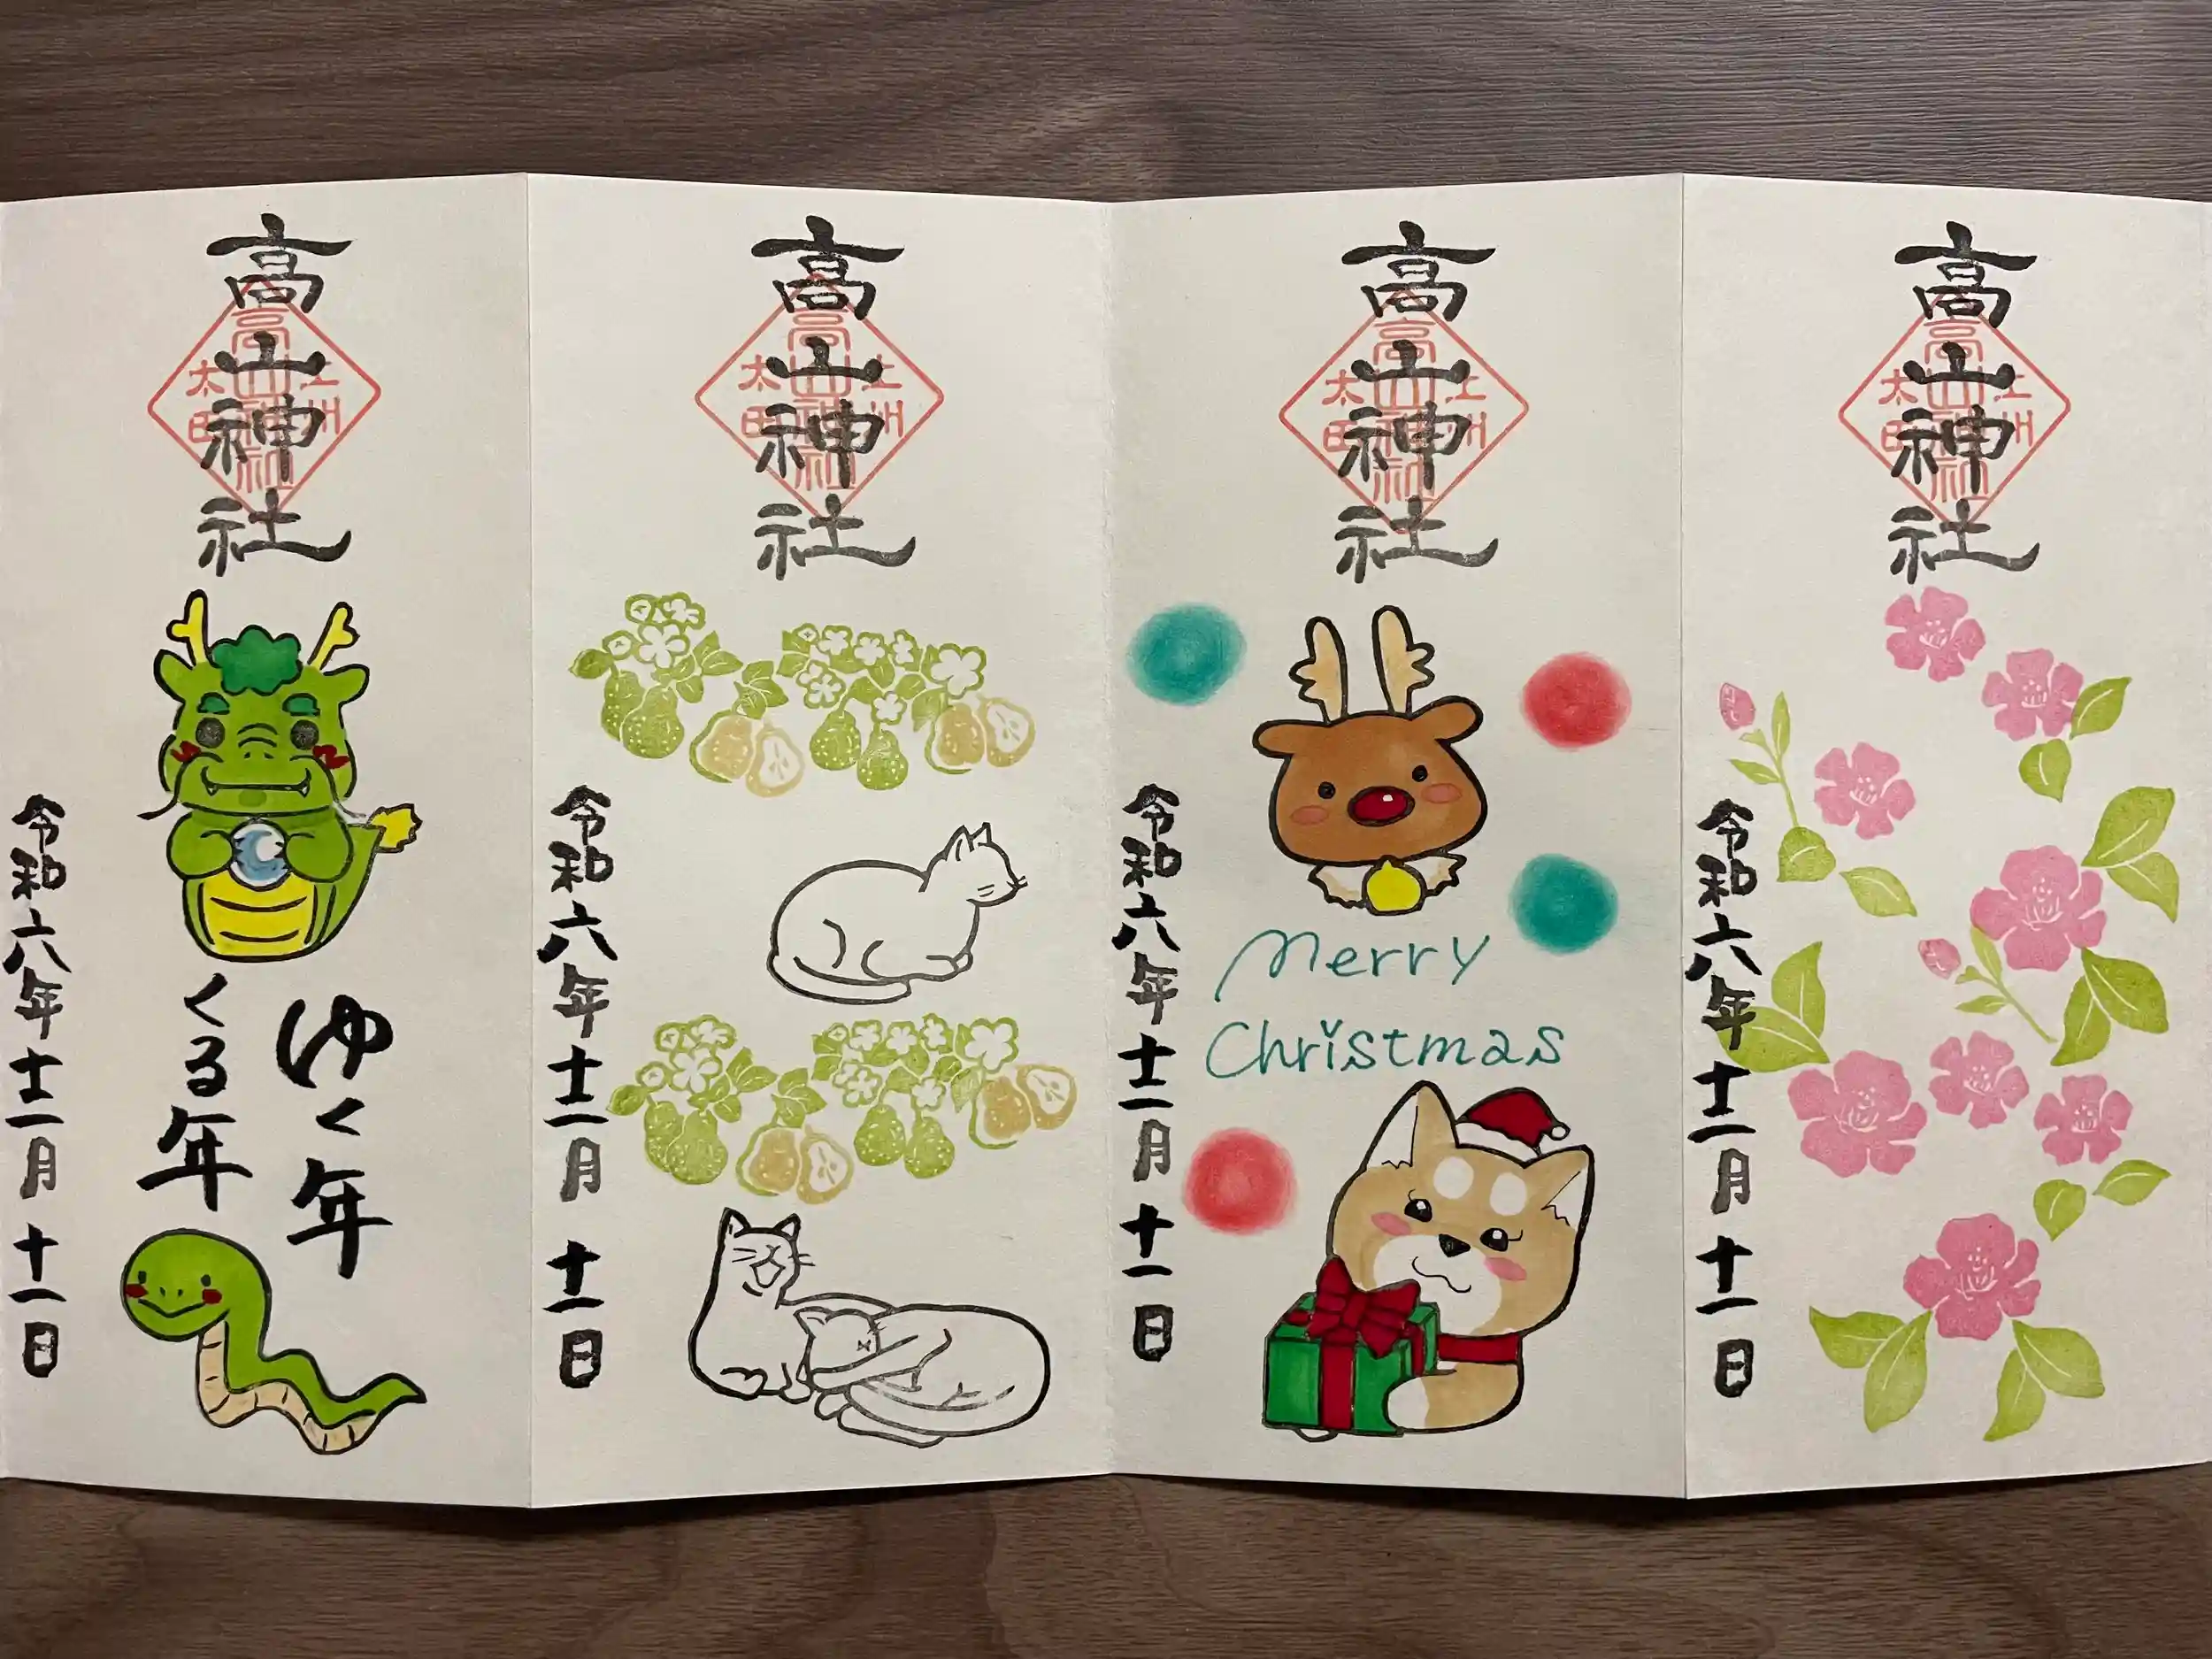 高山神社
上州
高山神社
太田
ゆく年
くる年
令和六年十二月十一日
高山神社
上州
高山神社
太田
令和六年十二月十一日
高山神社
上州
高山神社
太田
Merry
Christmas
令和六年十二月十一日
高山神社
上州
高山神社
太田
令和六年十二月十一日